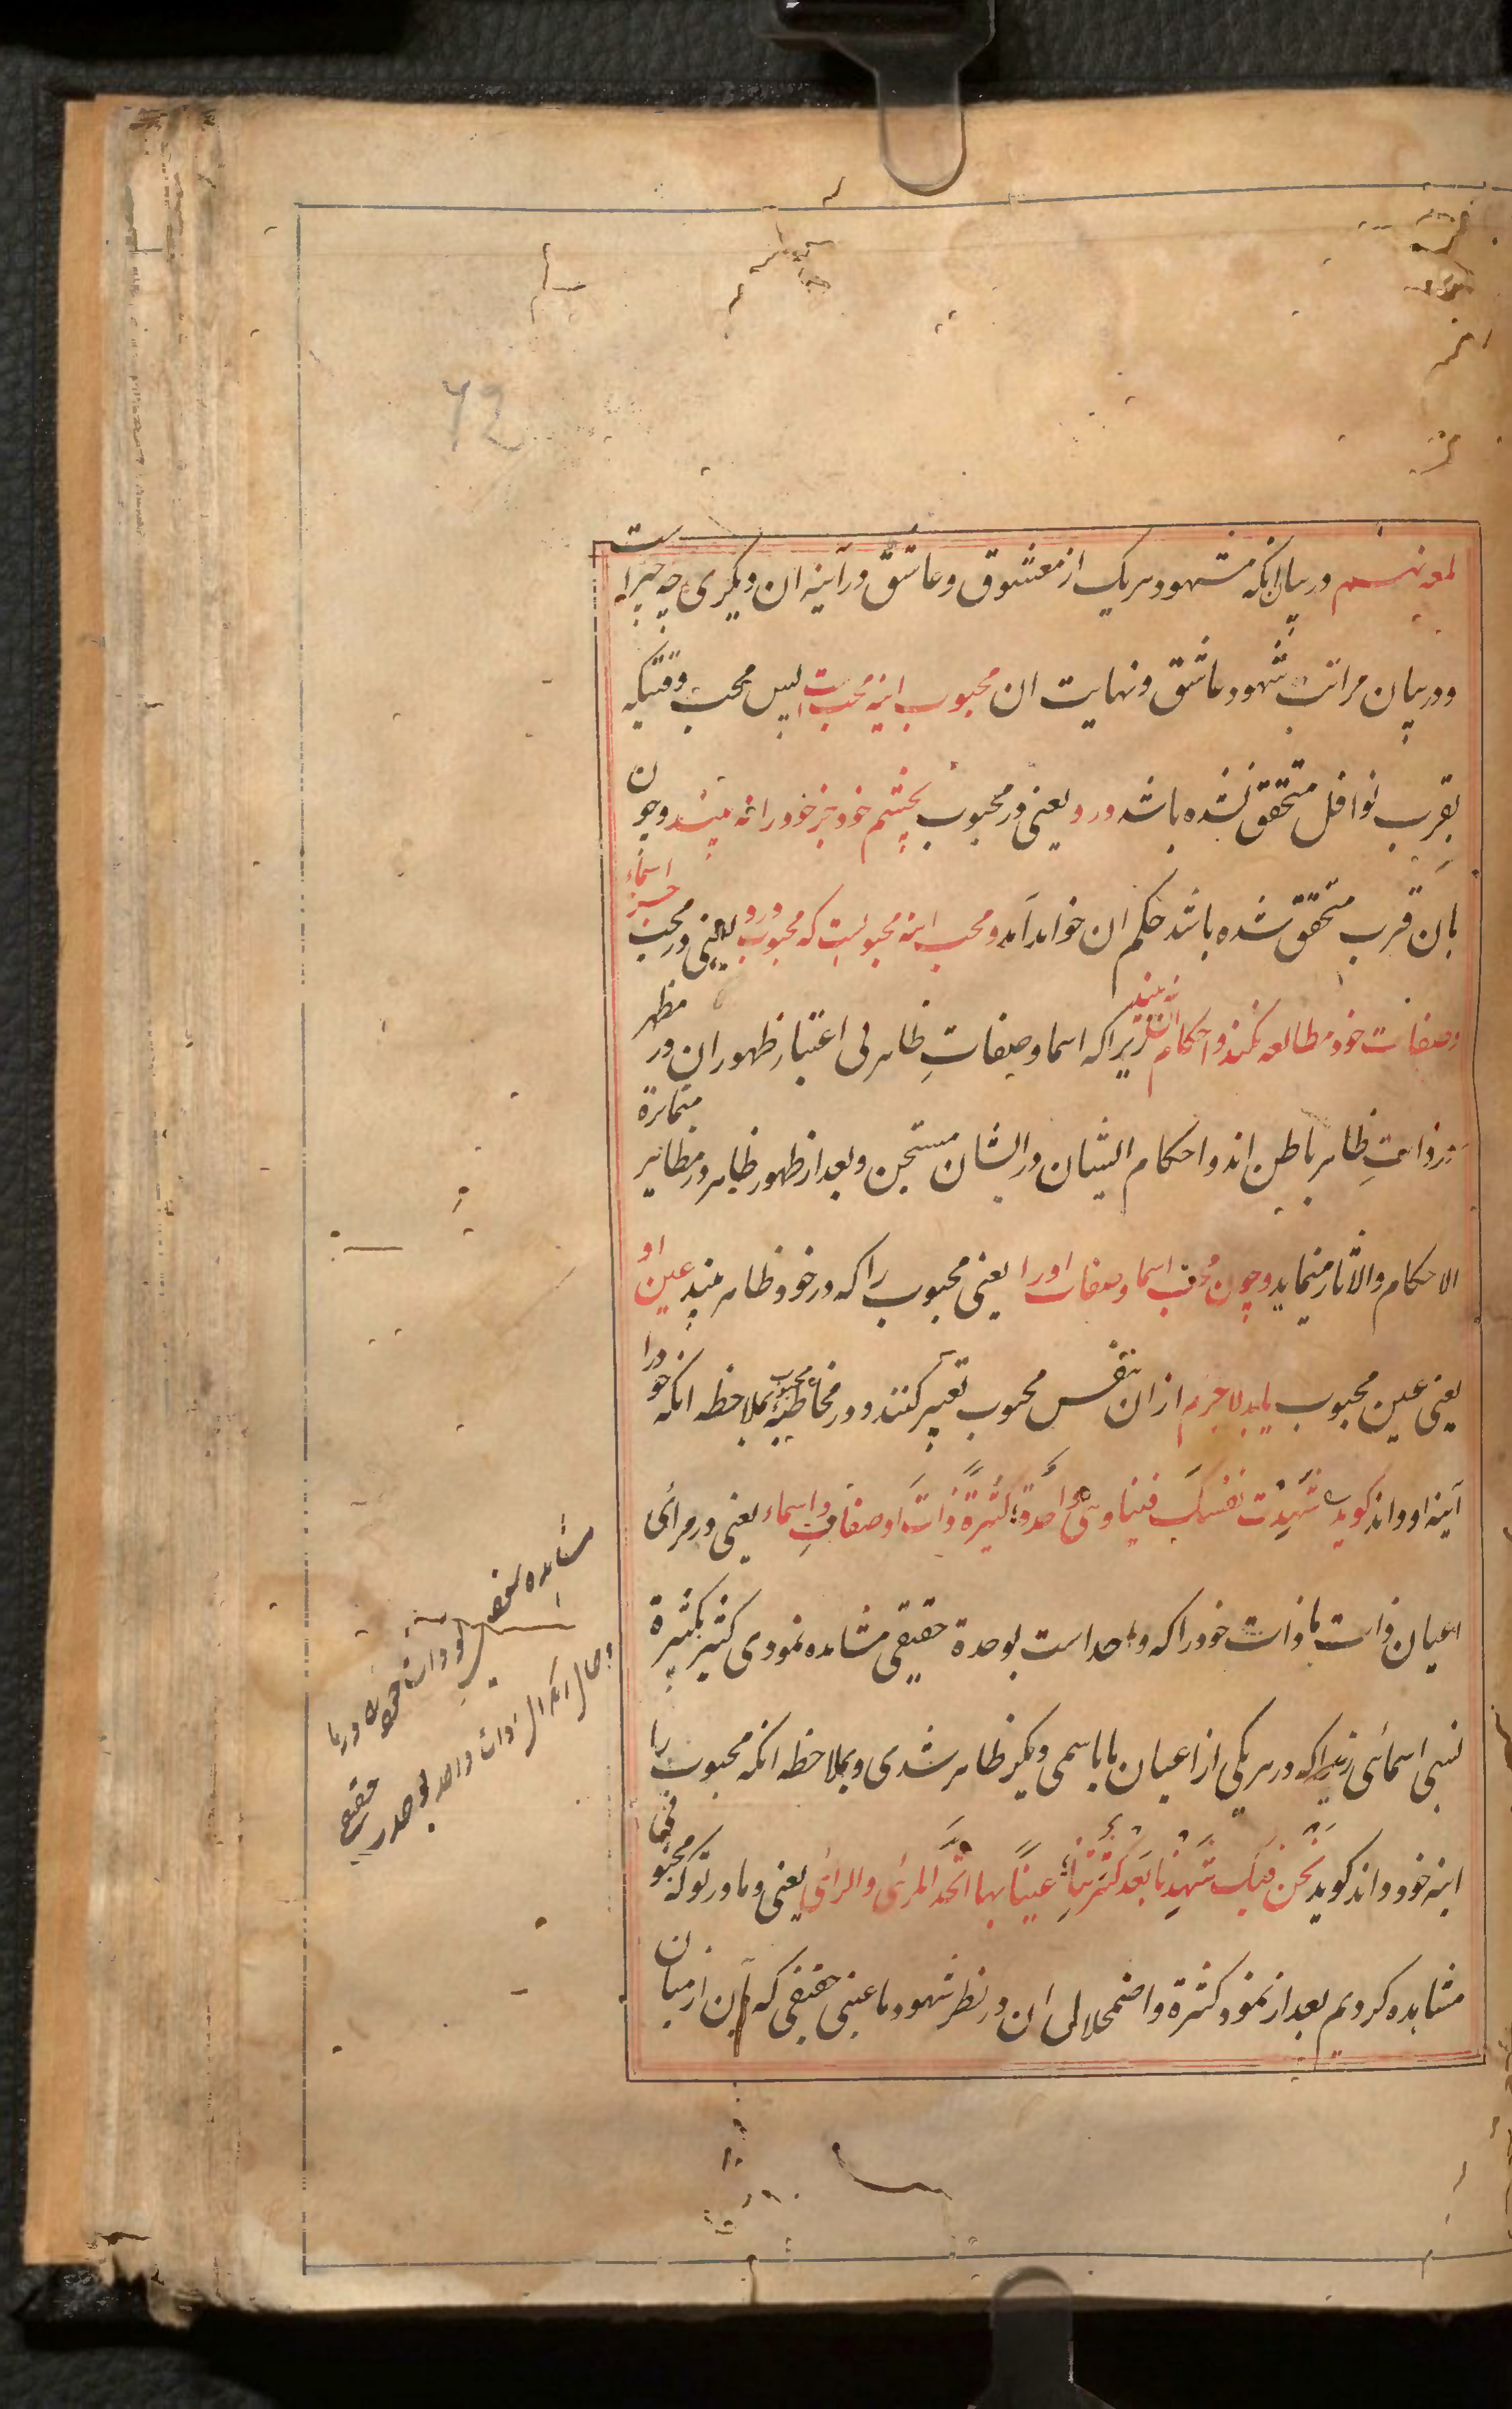 لمعه ششم در بیان انکه مشهود هر یک از معشوق و عاشق در آینه ان دیکری چه چیز است
و در بیان مراتب شهود عاشق و نهایت ان محبوب اینه محب است پس محب وقتیکه
بقرب نوافل متحقق نشده باشد درو یعنی در محبوب بچشم خود جز خود را نه بیند و چون
بان قرب متحقق شده باشد حکم ان خواهد آمد و محب اینه محبوبست که محبوب درو یعنی در محب جز اسماء
و صفات خود مطالعه نکند و احکام ان نه بیند زیرا که اسما و صفاتِ ظاهر بی اعتبار ظهور ان در مظهر
در ذاتِ ظاهر باطن اند و احکام ایشان در ایشان مستجن و بعد از ظهور ظاهر در مظاهر متمایزة
الاحکام والاثار مینماید و چون محب اسما و صفات اورا یعنی محبوب را که در خود ظاهر بیند عین او
یعنی عین محبوب یابد لاجرم از ان بنفس محبوب تعبیر کنند و در مخاطبه محبوب بملاحظه انکه خود را
آینه او داند کوید شَهِدْتَ نَفْسَكَ فینا وهی واحدةٌ کثیرةً ذاتَ اوصافٍ واسماء یعنی در مرائی
اعیان ذات ما ذات خود را که واحد است بوحدة حقیقی مشاهده نمودی کثیر بکثرة
نسبی اسمائی زیرا که در هر یکی از اعیان ما باسمی دیکر ظاهر شدی و بملاحظه انکه محبوب را
اینه خود داند کوید نحن فیک شَهِدْنا بَعْدَ کثرتنا عیناً بها اتّحد المرئی والرائی یعنی و ما در تو که محبوب مائی
مشاهده کردیم بعد از نمود کثرة و اضمحلال ان در نظر شهود ما عینی حقیقی که بان از میان
مشاهده
ذات خود که در ما
و حال انکه ان ذات واحد بوحدت
حقیقی